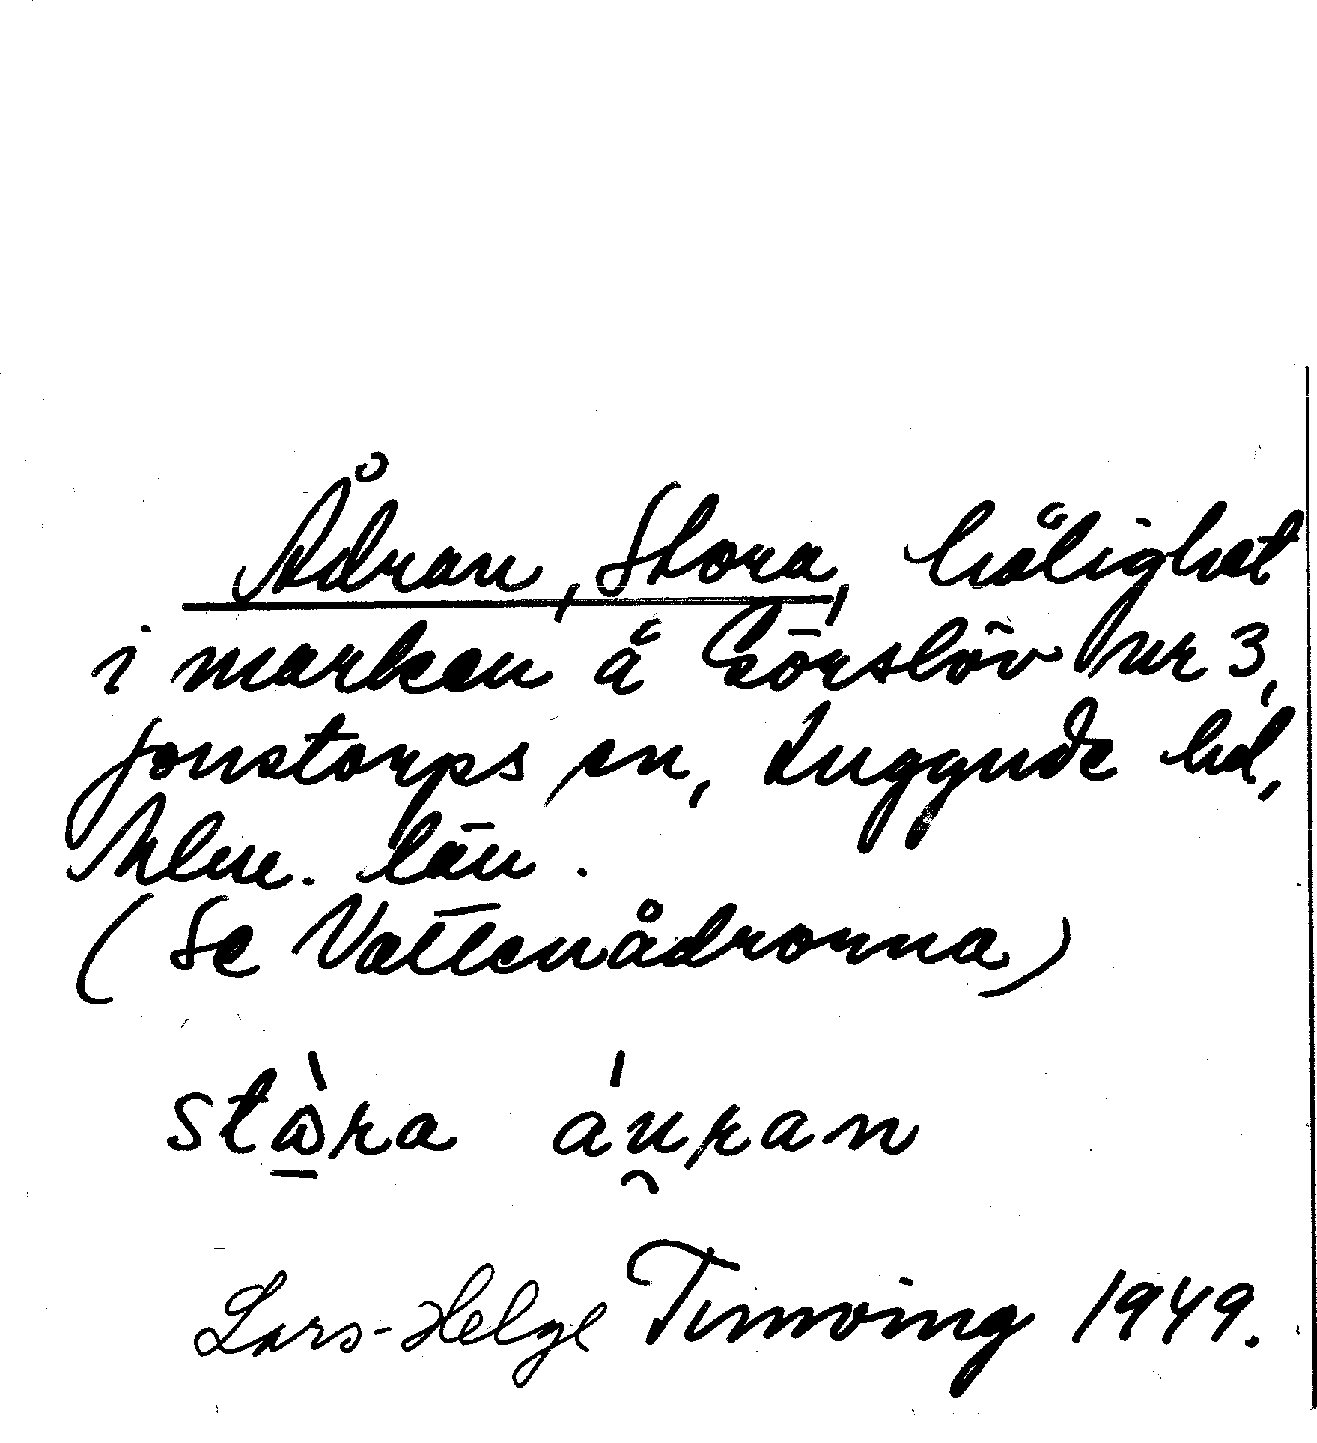 Ådran, Stora, hålighet
i marken å Görslöv nr 3,
Jonstorps sn, Luggude hd,
Mlm. län.
(Se Vattenådrorna)
stàra áu̯ran
Lars-Helge Timving 1949.